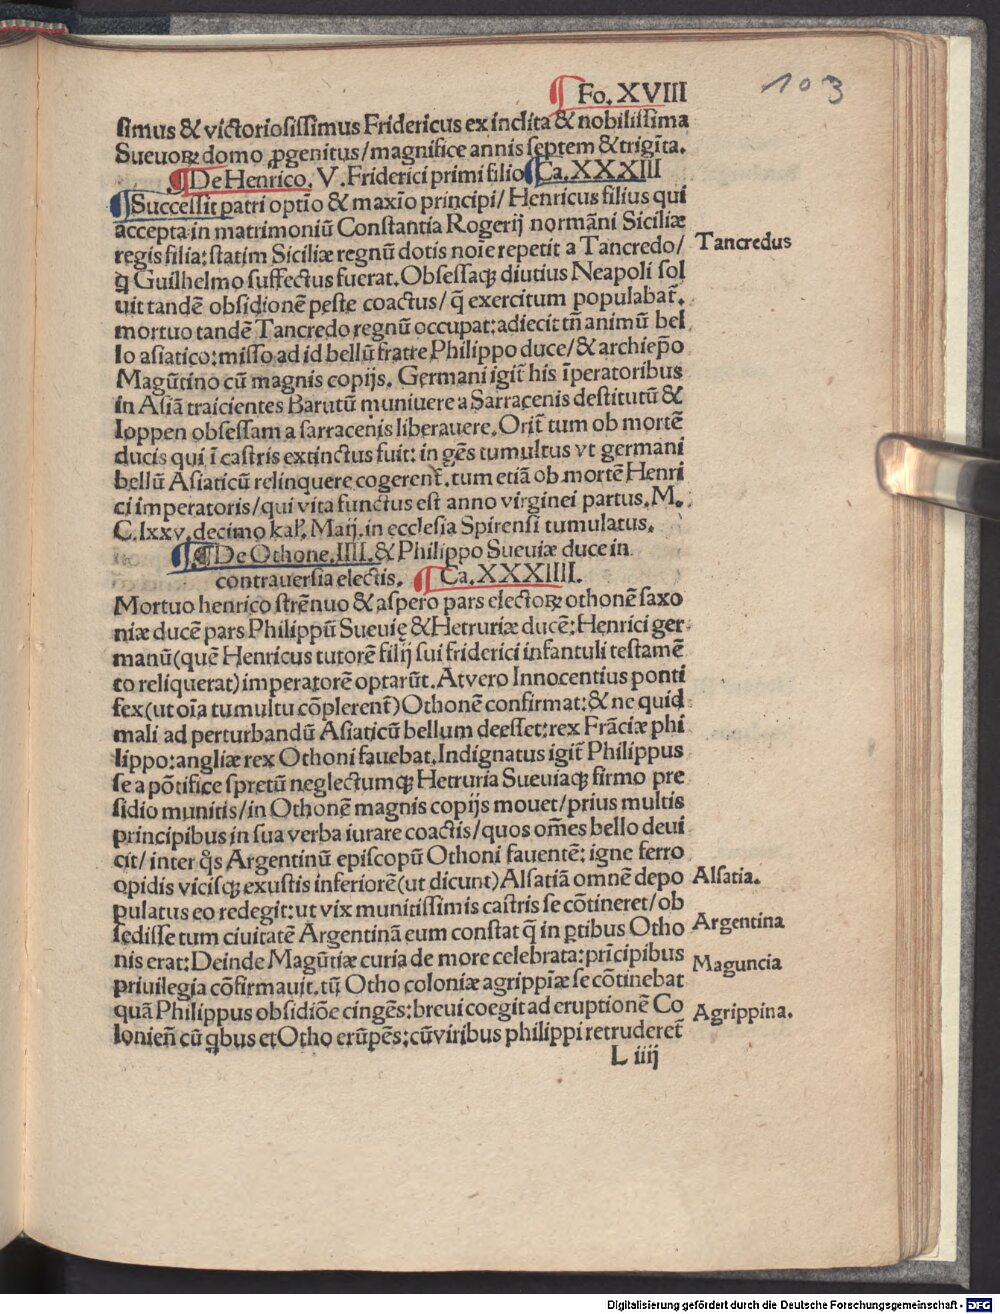 ¶ Fo. XVIII
103
simus & victoriosissimus Fridericus ex inclita & nobilissima
Sueuoꝝ domo ꝓgenitus/magnifice annis septem & trigīta.
¶ De Henrico. V. Friderici primi filio ¶ Ca. XXXIII
¶ Successit patri optīo & maxīo principi/ Henricus filius qui
accepta in matrimoniū Constantia Rogerij normāni Siciliæ
regis filia: statim Siciliæ regnū dotis noīe repetit a Tancredo/
Tancredus
q̄ Guilhelmo suffectus fuerat. Obsessaqꝫ diutius Neapoli sol
uit tandē obsidionē peste coactus/ q̄ exercitum populabat̄.
mortuo tandē Tancredo regnū occupat: adiecit tn̄ animū bel
lo asiatico: misso ad id bellū fratre Philippo duce/& archiep̄o
Magūtino cū magnis copijs. Germani igit̄ his īperatoribus
in Asiā traicientes Barutū muniuere a Sarracenis destitutū &
Ioppen obsessam a sarracenis liberauere. Orit̄ tum ob mortē
ducis qui ī castris extinctus fuit: in gēs tumultus vt germani
bellū Asiaticū relinquere cogerent̄. tum etiā ob mortē Henri
ci imperatoris/qui vita functus est anno virginei partus. M.
C. lxxv. decimo kal̄. Maij. in ecclesia Spirensi tumulatus.
¶ De Othone. IIII. & Philippo Sueuiæ duce in
contrauersia electis. ¶ Ca. XXXIIII.
Mortuo henrico strēnuo & aspero pars electoꝝ othonē saxo
niæ ducē pars Philippū Sueuię & Hetruriæ ducē: Henrici ger
manū (quē Henricus tutorē filij sui friderici infantuli testamē
to reliquerat) imperatorē optarūt. At vero Innocentius ponti
fex (ut oīa tumultu cōplerent̄) Othonē confirmat: & ne quid
mali ad perturbandū Asiaticū bellum deesset: rex Frāciæ phi
lippo: angliæ rex Othoni fauebat. Indignatus igit̄ Philippus
se a pōtifice spretū neglectumqꝫ Hetruria Sueuiaqꝫ firmo pre
sidio munitis/in Othonē magnis copijs mouet/prius multis
principibus in sua verba iurare coactis/quos om̄es bello deui
cit/ inter q̄s Argentinū episcopū Othoni fauentē: igne ferro
opidis vicisqꝫ exustis inferiorē (ut dicunt) Alsatiā omnē depo
Alsatia.
pulatus eo redegit: ut vix munitissimis castris se cōtineret/ob
sedisse tum ciuitatē Argentinā eum constat q̄ in ꝑtibus Otho
Argentina
nis erat: Deinde Magūtiæ curia de more celebrata: prīcipibus
Maguncia
priuilegia cōfirmauit. tū Otho coloniæ agrippīæ se cōtinebat
quā Philippus obsidiōe cingēs: breui coegit ad eruptionē Co
Agrippina.
lonien̄ cū q̄bus et Otho erūpēs: cū viribus philippi retruderet̄
L iiij
Digitalisierung gefördert durch die Deutsche Forschungsgemeinschaft - DFG